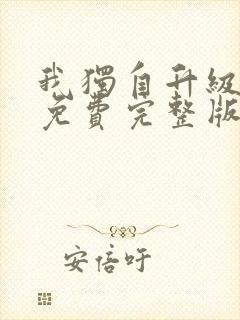 我獨自升級
免費完整版
安倍吁